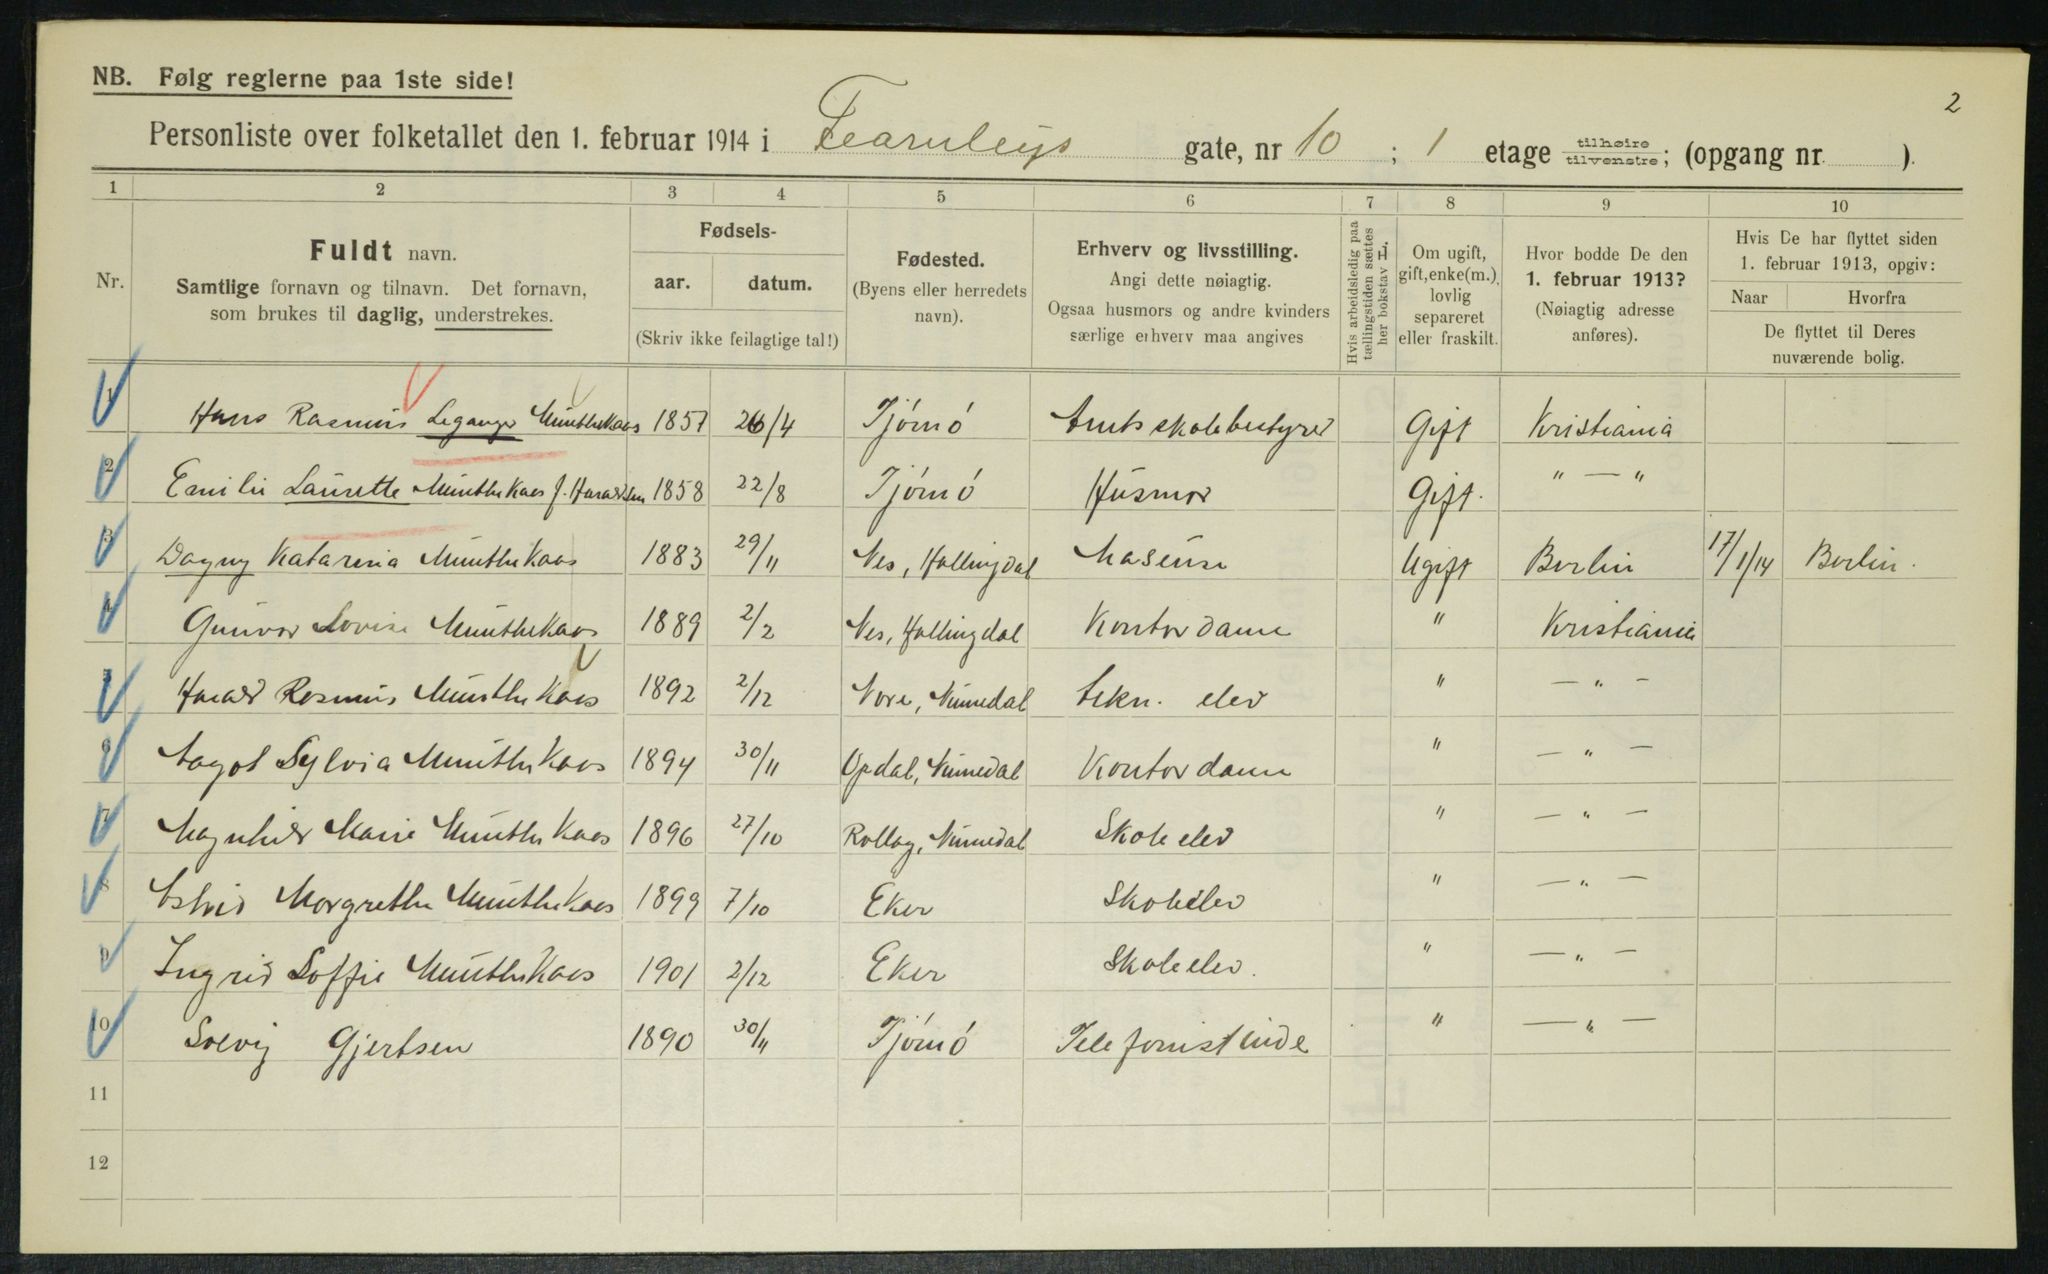 2
NB. Følg reglerne paa 1ste side!
Personliste over folketallet den 1. februar 1914 i Fearnleys gate, nr 10 ; 1 etage tilhøire tilvenstre; (opgang nr ).
1 2 3 4 5 6 7 8 9 10
Nr. Fuldt navn. Samtlige fornavn og tilnavn. Det fornavn, som brukes til daglig, understrekes.
Fødsels- aar. datum. (Skriv ikke feilagtige tal!)
Fødested. (Byens eller herredets navn).
Erhverv og livsstilling. Angi dette nøiagtig. Ogsaa husmors og andre kvinders særlige erhverv maa angives
Hvis arbeidsledig paa tællingstiden sættes her bokstav L.
Om ugift, gift, enke(m.), lovlig separeret eller fraskilt.
Hvor bodde De den 1. februar 1913? (Nøiagtig adresse anføres).
Hvis De har flyttet siden 1. februar 1913, opgiv: Naar Hvorfra De flyttet til Deres nuværende bolig.
1 Hans Rasmus Leganger Munthe Kaas 1857 26/4 Tjömö Amtsskolebestyrer Gift Kristiania
2 Emilie Laurette Munthe Kaas f. Haraldsen 1858 22/8 Tjömö Husmor Gift. " — "
3 Dagny Katarina Munthe Kaas 1883 29/11 Nes, Hallingdal Ugift Berlin 17/1/14 Berlin.
4 Gunvor Lovise Munthe Kaas 1889 2/2 Nes, Hallingdal Kontordame " Kristiania
5 Harald Rasmus Munthe Kaas 1892 2/12 Nore, Numedal tekn. elev " — " —
6 Aagot Sylvia Munthe Kaas 1894 30/11 Opdal, Numedal Kontordame " — " —
7 Magnhild Marie Munthe Kaas 1896 27/10 Rollag, Numedal Skoleelev " — " —
8 Astrid Margrethe Munthe Kaas 1899 7/10 Eker Skoleelev " — " —
9 Ingrid Soffie Munthe Kaas 1901 2/12 Eker Skoleelev. " — " —
10 Solvig Gjertsen 1890 30/11 Tjömö Telefonistinde " — " —
11
12